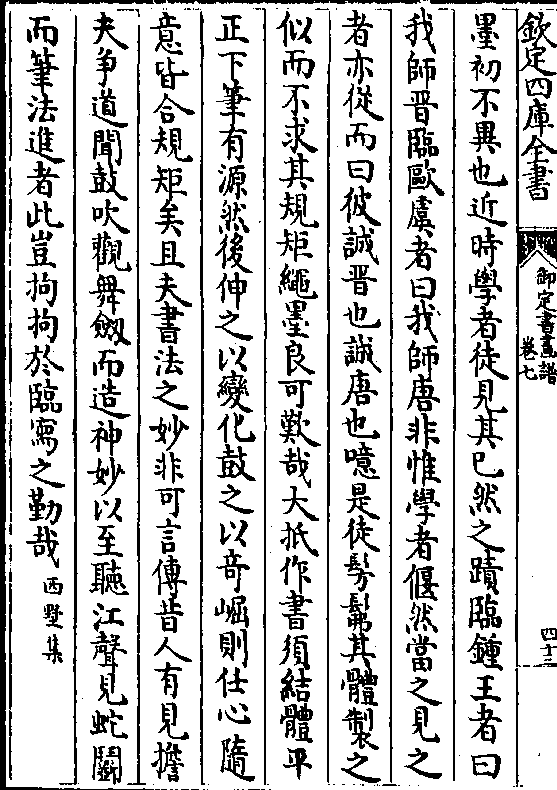 欽定四庫全書
御定書畫譜
卷七
四十三
墨初不異也近時學者徒見其已然之蹟臨鍾王者曰
我師晋臨歐虞者曰我師唐非惟學者偃然當之見之
者亦從而曰彼誠晋也誠唐也噫是徒髣髴其體製之
似而不求其規矩繩墨良可歎哉大抵作書須結體平
正下筆有源然後伸之以變化鼓之以奇崛則任心隨
意皆合規矩矣且夫書法之妙非可言傳昔人有見擔
夫争道聞鼓吹觀舞劔而造神妙以至聽江聲見蛇鬭
而筆法進者此豈拘拘於臨寫之勤哉西墅集